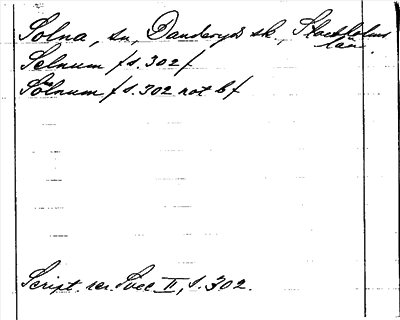 Solna, sn, Danderyds sk., Stockholms
län.
Selnum /s. 302/
Solnum /s. 302 not b/
Script. rer. Svec II, s. 302.